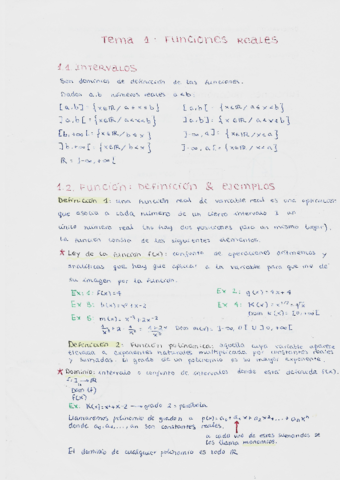 Tema 1: Funciones Reales
1.1. INTERVALOS
Son dominios de definición de las funciones.
Dados a,b números reales a<b.
[a,b] = {x∈ℝ / a≤x≤b}
[a,b[ = {x∈ℝ / a≤x<b}
]a,b] = {x∈ℝ / a<x≤b}
]a,b[ = {x∈ℝ / a<x<b}
[b,+∞[ = {x∈ℝ / b≤x}
]-∞,a] = {x∈ℝ / x≤a}
]b,+∞[ = {x∈ℝ / b<x}
]-∞,a[ = {x∈ℝ / x<a}
ℝ = ]-∞,+∞[
1.2. FUNCIÓN: DEFINICIÓN & EJEMPLOS
Definición 1: una función real de variable real es una operación
que asocia a cada número de un cierto intervalo I un
único número real (no hay dos posiciones para un mismo lugar).
La función consta de los siguientes elementos.
* Ley de la función f(x): conjunto de operaciones aritméticas y
analíticas que hay que aplicar a la variable para que me dé
su imagen por la función.
Ex:
Ex 2:
Ex 4:
Ex 5: m(x) =
Dom m(x)
Definición 2: Función polinómica: aquella cuya variable aparece
elevada a exponentes naturales multiplicada por constantes reales
y sumadas. El grado de un polinomio es su mayor exponente.
* Dominio: intervalo o conjunto de intervalos donde está definida f(x).
Dom (f)
f(x)
grado 2 = parábola
Llamaremos polinomio de grado n a p(x) = a₀ + a₁x + a₂x² + ... + aₙxⁿ
donde a₀, a₁, ..., aₙ son constantes reales.
a cada uno de estos sumandos se
les llama monomios.
El dominio de cualquier polinomio es todo ℝ